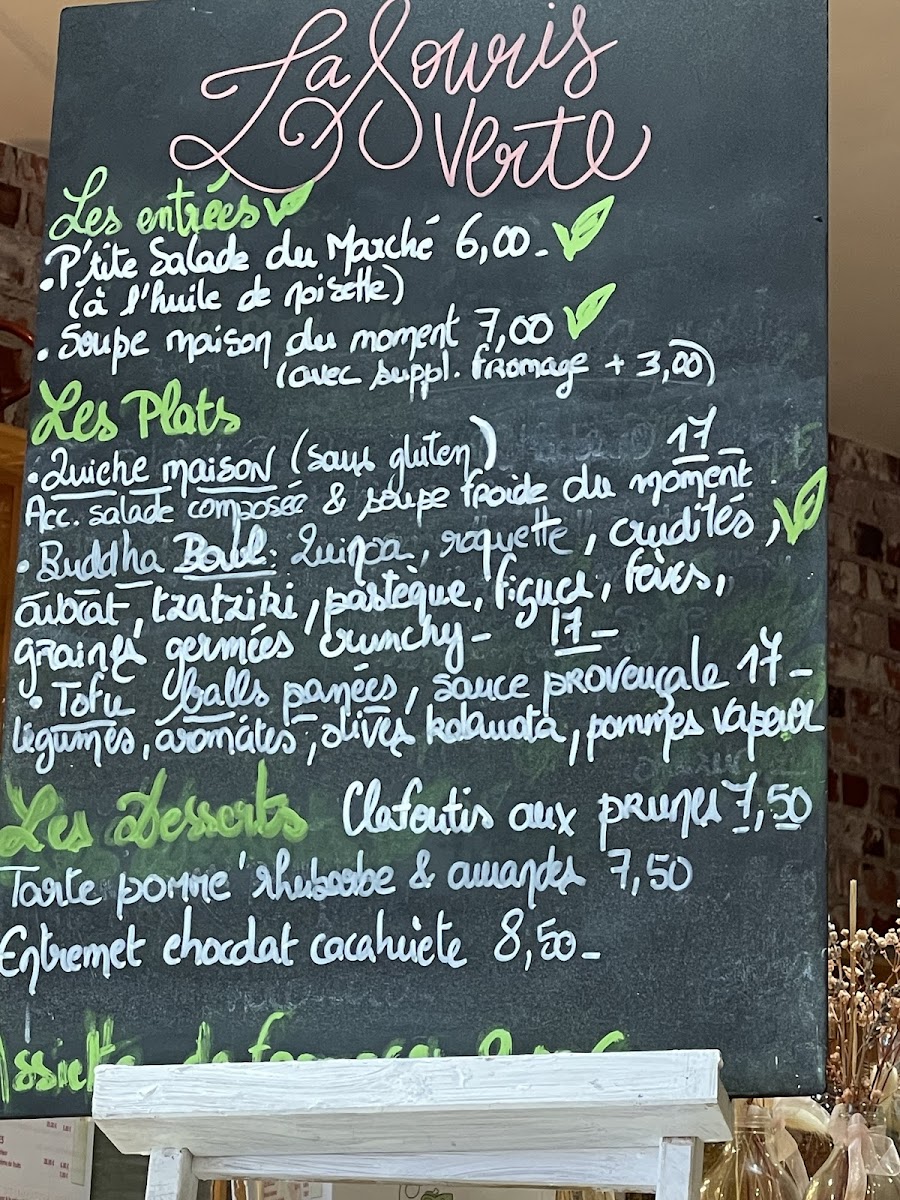 La Souris
Verte
Les entrées
• P'tite Salade du Marché 6,00-
(à l'huile de noisette)
• Soupe maison du moment 7,00
(avec suppl. fromage + 3,00)
Les Plats
• Quiche maison (sans gluten) 17-
Acc. salade composée & soupe froide du moment.
• Buddha Bowl: Quinoa, roquette, crudités,
avocat, tzatziki, pastèque, figues, fèves,
graines germées crunchy- 17-
• Tofu balls panées, sauce provençale 17-
légumes, aromates, olives kalamata, pommes vapeur
Les Desserts Clafoutis aux prunes 7,50
Tarte pomme rhubarbe & amandes 7,50
Entremet chocolat cacahuète 8,50-
Assiette de